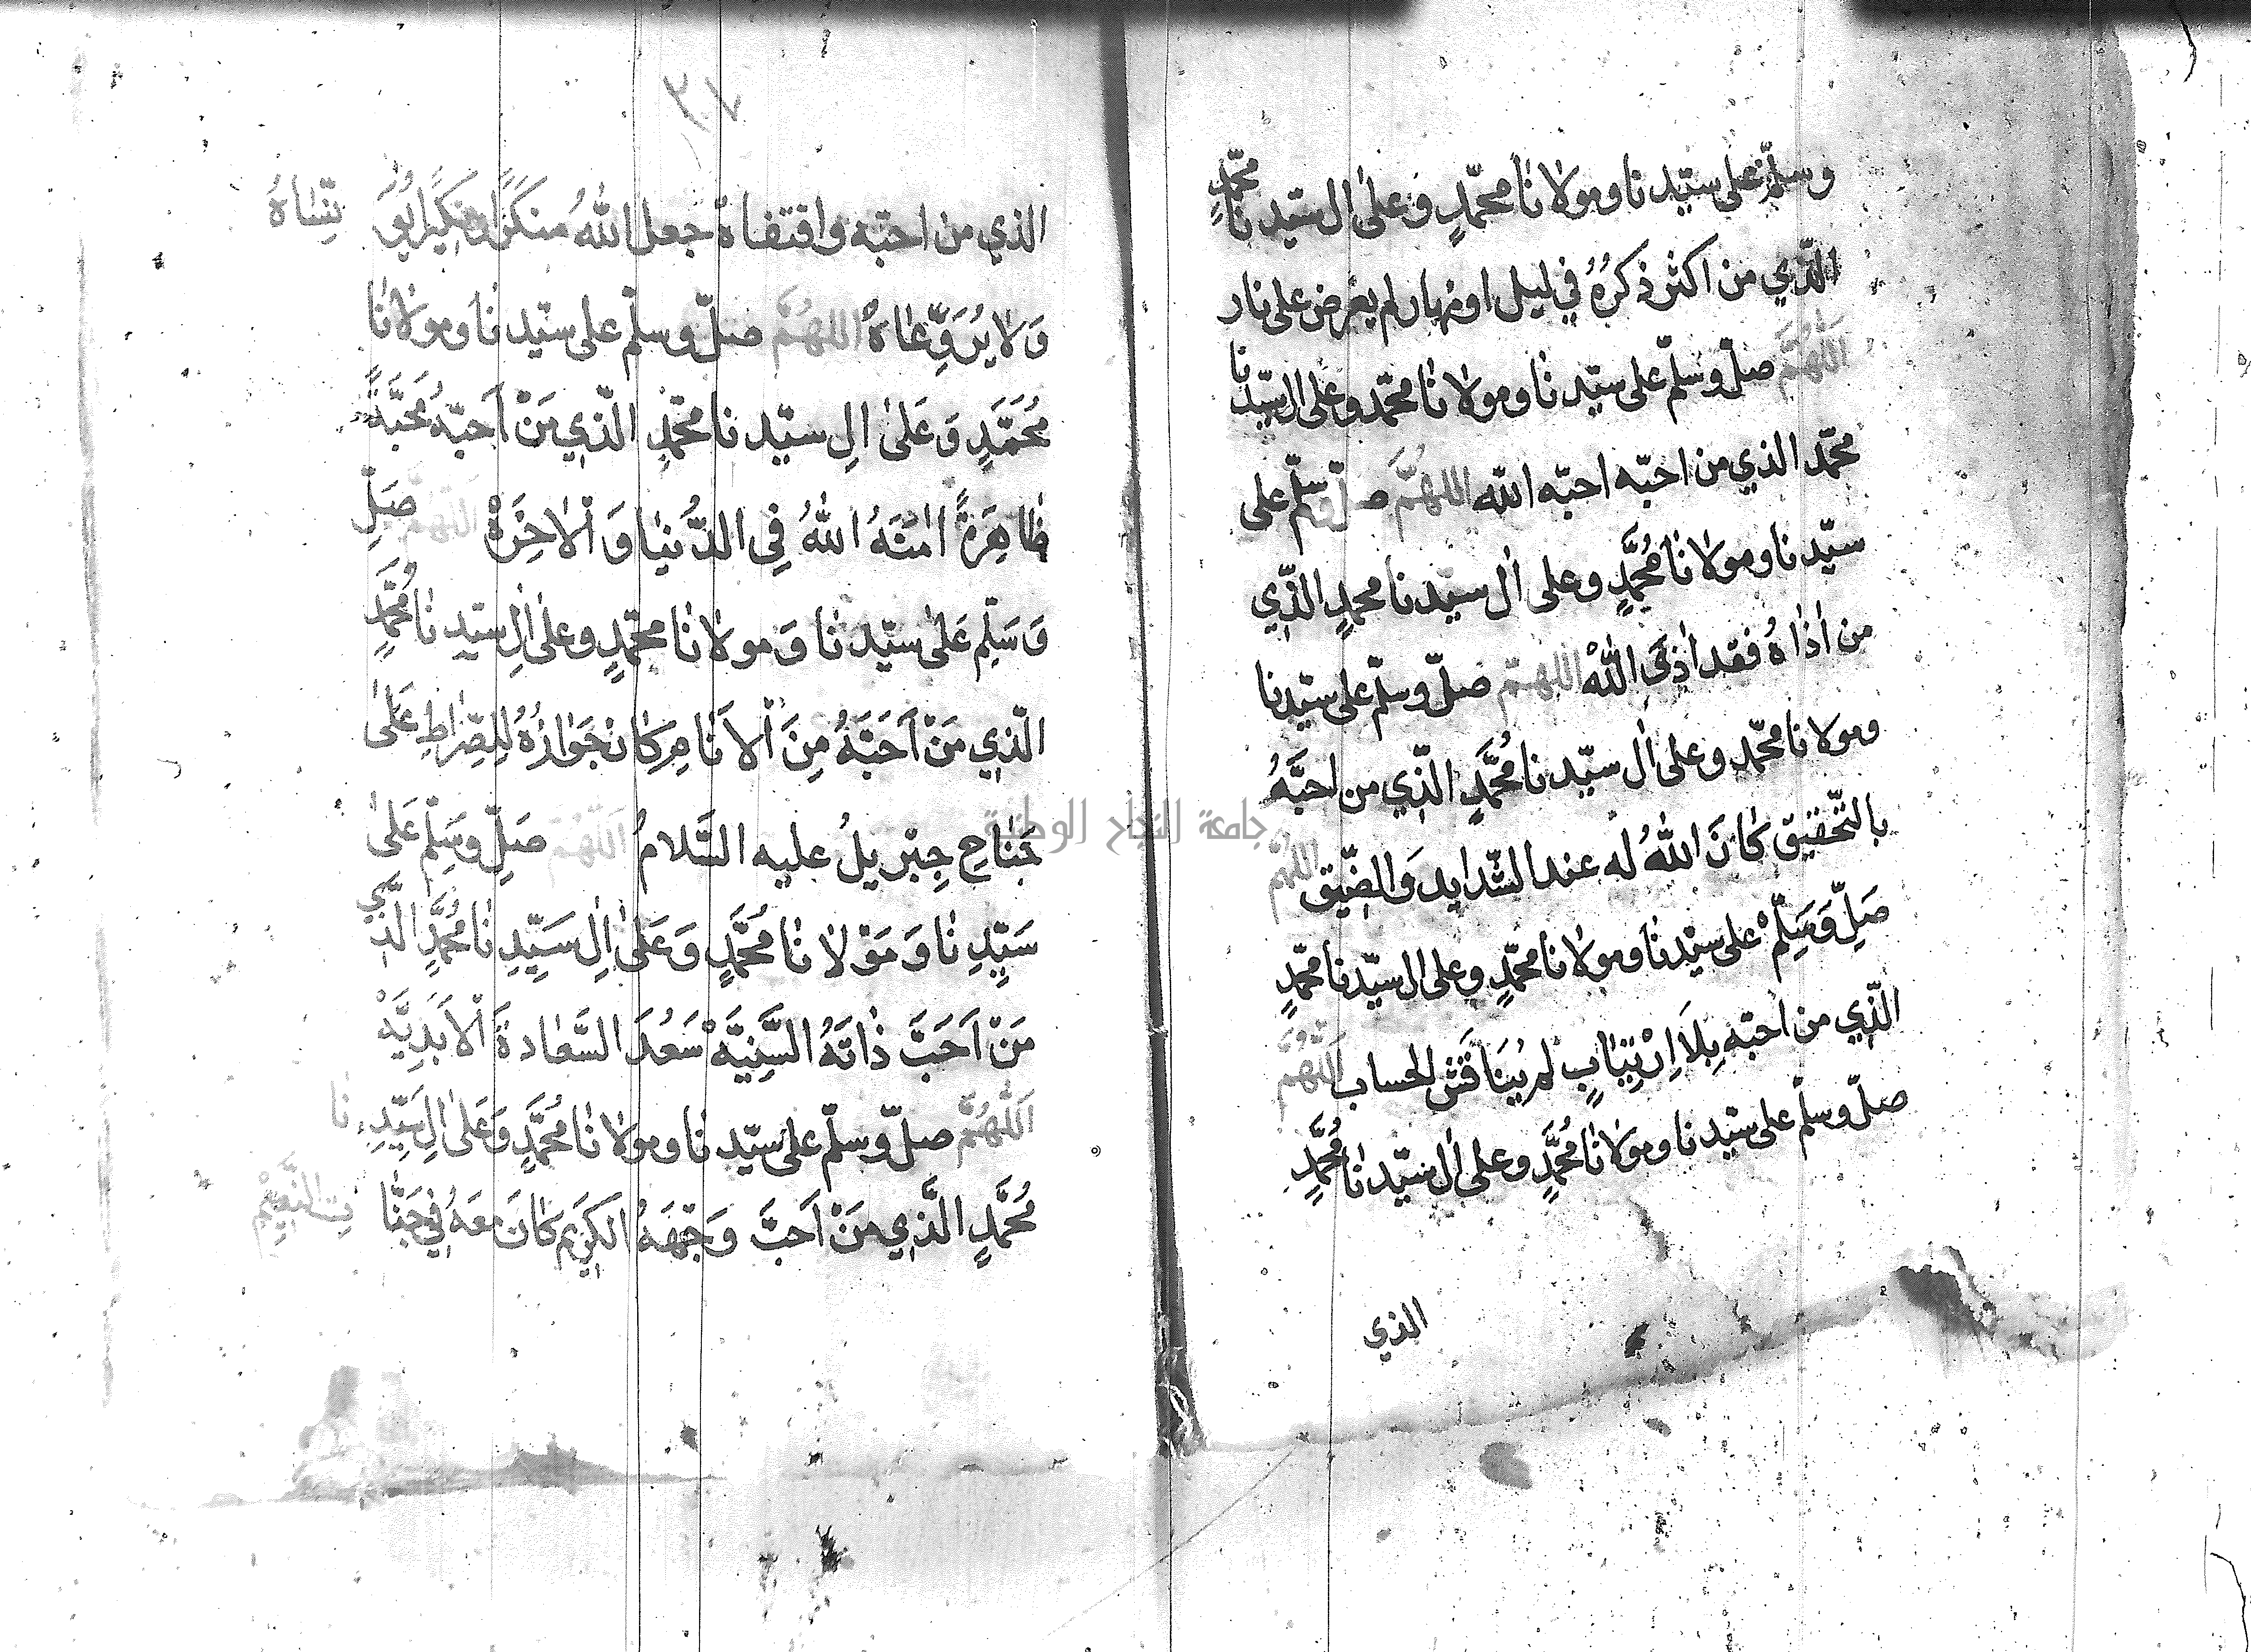 وسلّم على سيّدنا ومولانا محمّدٍ وعلى ال سيّدنا محمّدٍ
الّذي من اكثر ذكرُهُ في ليل او نهار لم يعرض على نار
اَللّهُمَّ صلّ وسلّم على سيّدنا ومولانا محمّد وعلى ال سيّدنا
محمّد الذي من احبّه احبّه الله اللهُمَّ صلّ وسلّم على
سيّدنا ومولانا مُحمَّدٍ وعلى اٰل سيّدنا محمدٍ الّذِي
من اٰذاهُ فقد اٰذَى اللهْ اللهمّ صلّ وسلّم على سيّدنا
ومولانا محمّدٍ وعلى اٰل سيّدنا مُحمَّدٍ الّذِي من احبَّهُ
بالتّحقيق كانَ اللهُ له عند الشّدايد وَالضّيق اللهُمّ
صَلِّ وَسَلِّمْ على سيّدنا ومولانا محمّدٍ وعلى ال سيّدنا محمّدٍ
الّذِي من احبّه بِلَا اِرْتِيَابٍ لم يُنَاقَش الحساب اَللّهُمَّ
صلّ وسلّم على سيّدنا ومولانا مُحمَّدٍ وعلى اٰل سيّدنا مُحمَّدٍ
الذي
٣٧
الذي من احبّه واقتفاهْ جعل اللهُ منكرًا ونكيرًا يُوَنِّسَاهُ
وَلا يُرَوِّعَاهْ اللهُمَّ صلّ وسلّم على سيّدنا ومولانا
مُحَمَّدٍ وَعَلىٰ اٰلِ سيّدنا محمّدٍ الّذِي مَنْ اَحبّهُ مَحَبَّةً
ظاهِرَةً اٰمَنَهُ اللهُ فِي الدُّنيٰا وَالْاٰخِرَةْ اَللّهُمَّ صَلِّ
وَسَلِّم عَلىٰ سيّدنا وَمولانا محمّدٍ وعلىٰ اٰلِ سيّدِنا مُحَمَّدٍ
الّذِي مَنْ اَحَبَّهُ مِنَ الْاَنَامِ كانَ جَوَازُهُ لِلصِّرَاطِ عَلَىٰ
جَنَاحِ جِبْرِيلُ عليه السَّلامُ اَللّهُمَّ صَلِّ وَسَلِّم عَلىٰ
سَيِّدِنا وَمَوْلانا مُحَمَّدٍ وَعَلىٰ اٰلِ سَيِّدِنا مُحَمَّدٍ الّذِي
مَنْ اَحَبَّ ذاتَهُ السَّنِيَّهْ سَعُدَ السَّعَادةَ الْاَبَدِيَّهْ
اَللّهُمَّ صلّ وسلّم على سيّدنا ومولانا مُحمَّدٍ وَعَلىٰ اٰلِ سَيِّدِنا
مُحَمَّدٍ الَّذِي مَنْ اَحَبَّ وَجْهَهُ الكَرِيم كانَ مَعَهُ فِي جَنَّاتِ النَّعِيمْ
جامعة النجاح الوطنية